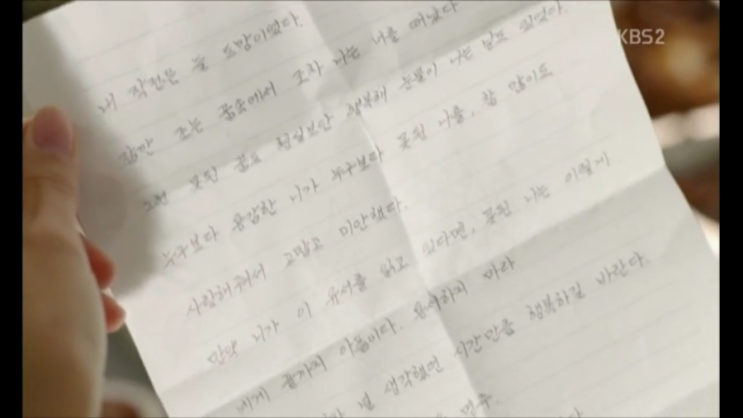 내 작전은 늘 도망이었다.
잠깐 조는 꿈속에서 조차 나는 너를 떠났다
그런 못된 꿈도 현실보단 행복해 눈물이 나는 날도 있었다
누구보다 용감한 니가 누구보다 못된 나를, 참 많이도
사랑해줘서 고맙고 미안했다.
만약 니가 이 유서를 읽고 있다면, 못된 나는 이렇게
네게 끝까지 아픔이다. 용서하지 마라
널 생각했던 시간만큼 행복하길 바란다.
KBS2